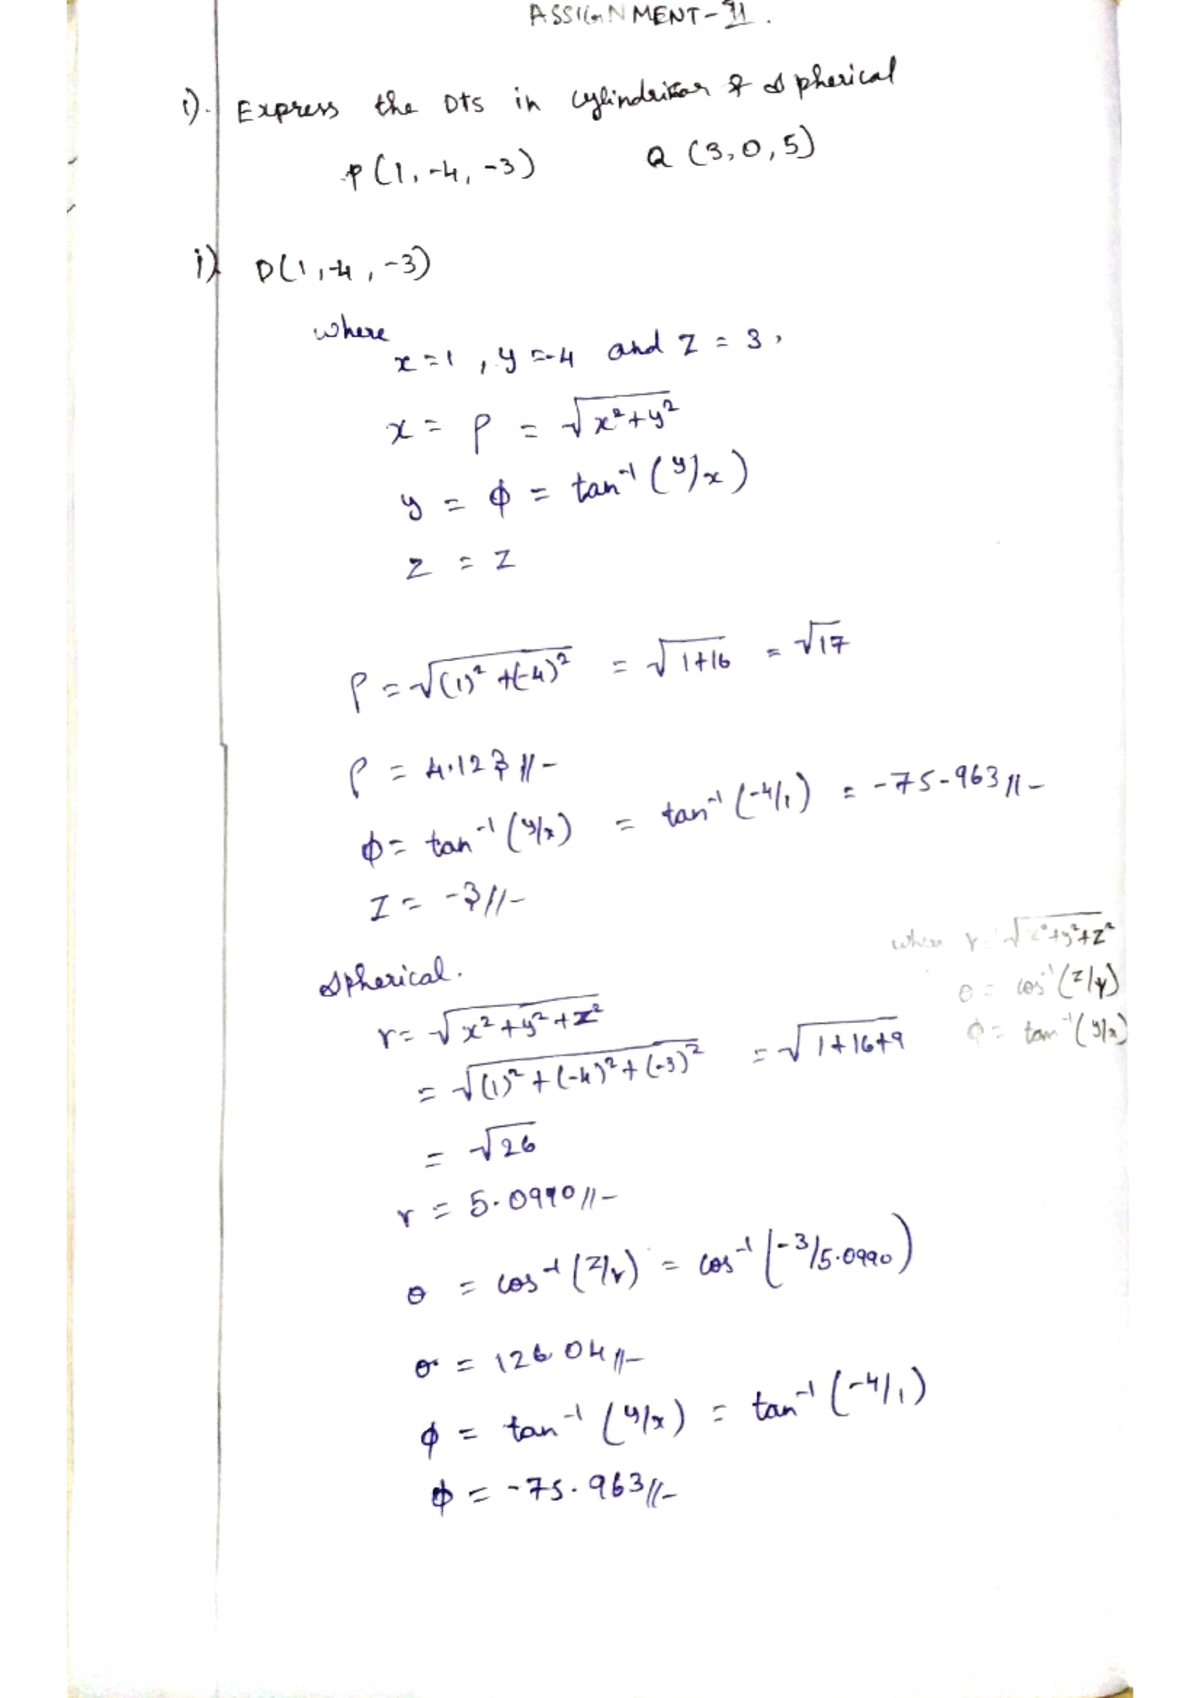 ASSIGNMENT - II.
1). Express the pts in cylindrical & spherical
P(1, -4, -3) Q (3, 0, 5)
i) P(1, -4, -3)
where
x = 1, y = -4 and z = 3,
x = ρ = √x²+y²
y = ϕ = tan⁻¹ (y/x)
z = z
ρ = √(1)² +(-4)² = √1+16 = √17
ρ = 4.123 //-
ϕ = tan⁻¹ (y/x) = tan⁻¹ (-4/1) = -75.963 //-
z = -3 //-
where r = √x²+y²+z²
Spherical.
θ = cos⁻¹ (z/r)
r = √x²+y²+z²
ϕ = tan⁻¹ (y/x)
= √(1)² + (-4)² + (-3)² = √1+16+9
= √26
r = 5.0990 //-
θ = cos⁻¹ (z/r) = cos⁻¹ (-3/5.0990)
θ = 126.04 //-
ϕ = tan⁻¹ (y/x) = tan⁻¹ (-4/1)
ϕ = -75.963 //-